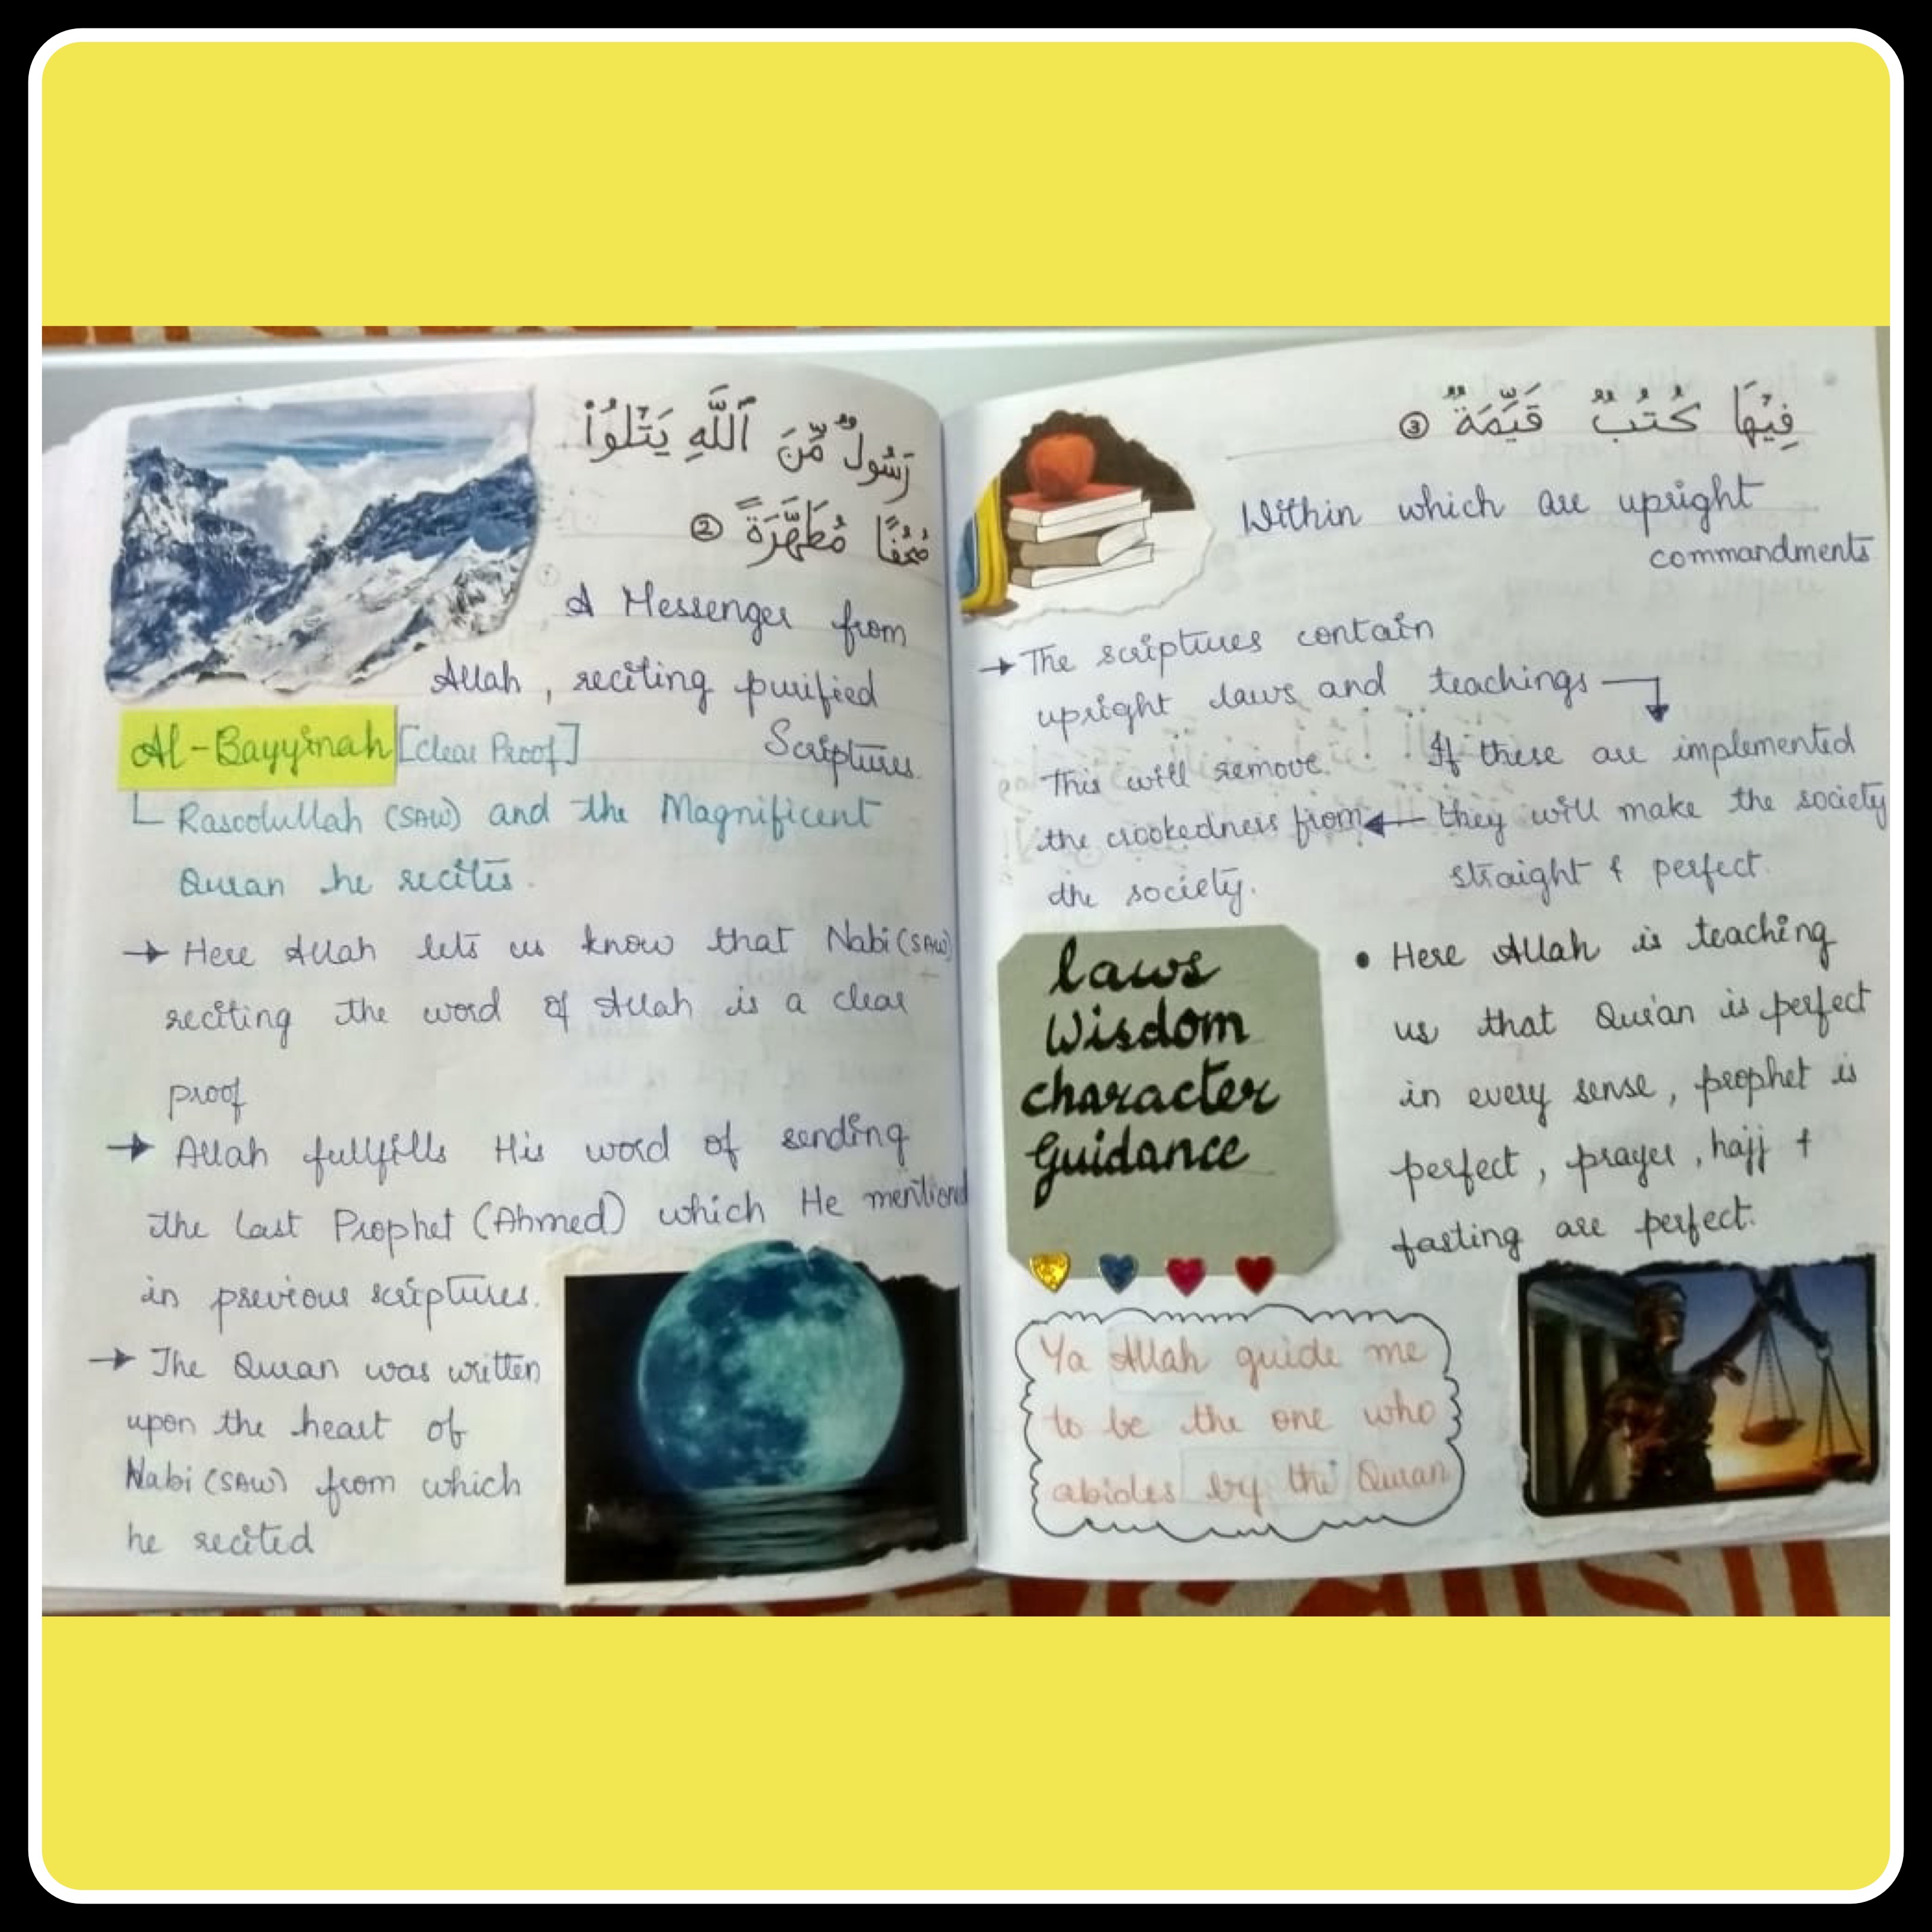 رَسُولٌ مِّنَ ٱللَّهِ يَتْلُوا۟
صُحُفًا مُّطَهَّرَةً ②
A Messenger from
Allah, reciting purified
Scriptures
Al-Bayyinah [Clear Proof]
Rasoolullah (SAW) and the Magnificent
Quran he recites.
→ Here Allah lets us know that Nabi (SAW)
reciting the word of Allah is a clear
proof
→ Allah fullfills His word of sending
the last Prophet (Ahmed) which He mentioned
in previous scriptures.
→ The Quran was written
upon the heart of
Nabi (SAW) from which
he recited
فِيْهَا كُتُبٌ قَيِّمَةٌ ③
Within which are upright
commandments
→ The scriptures contain
upright laws and teachings
If these are implemented
they will make the society
straight & perfect.
This will remove
the crookedness from
the society.
laws
Wisdom
character
Guidance
• Here Allah is teaching
us that Qur'an is perfect
in every sense, prophet is
perfect, prayer, hajj +
fasting are perfect.
Ya Allah guide me
to be the one who
abides by the Quran